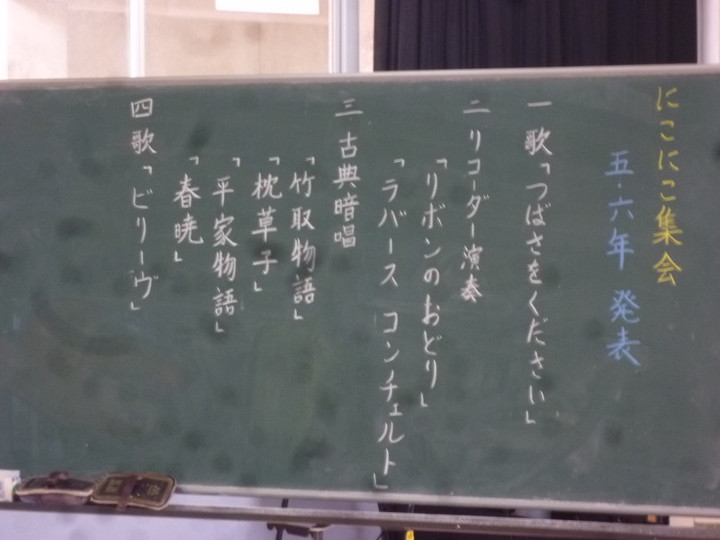 にこにこ集会
五・六年 発表
一 歌「つばさをください」
二 リコーダー演奏
「リボンのおどり」
「ラバース コンチェルト」
三 古典暗唱
「竹取物語」
「枕草子」
「平家物語」
「春暁」
四 歌「ビリーヴ」